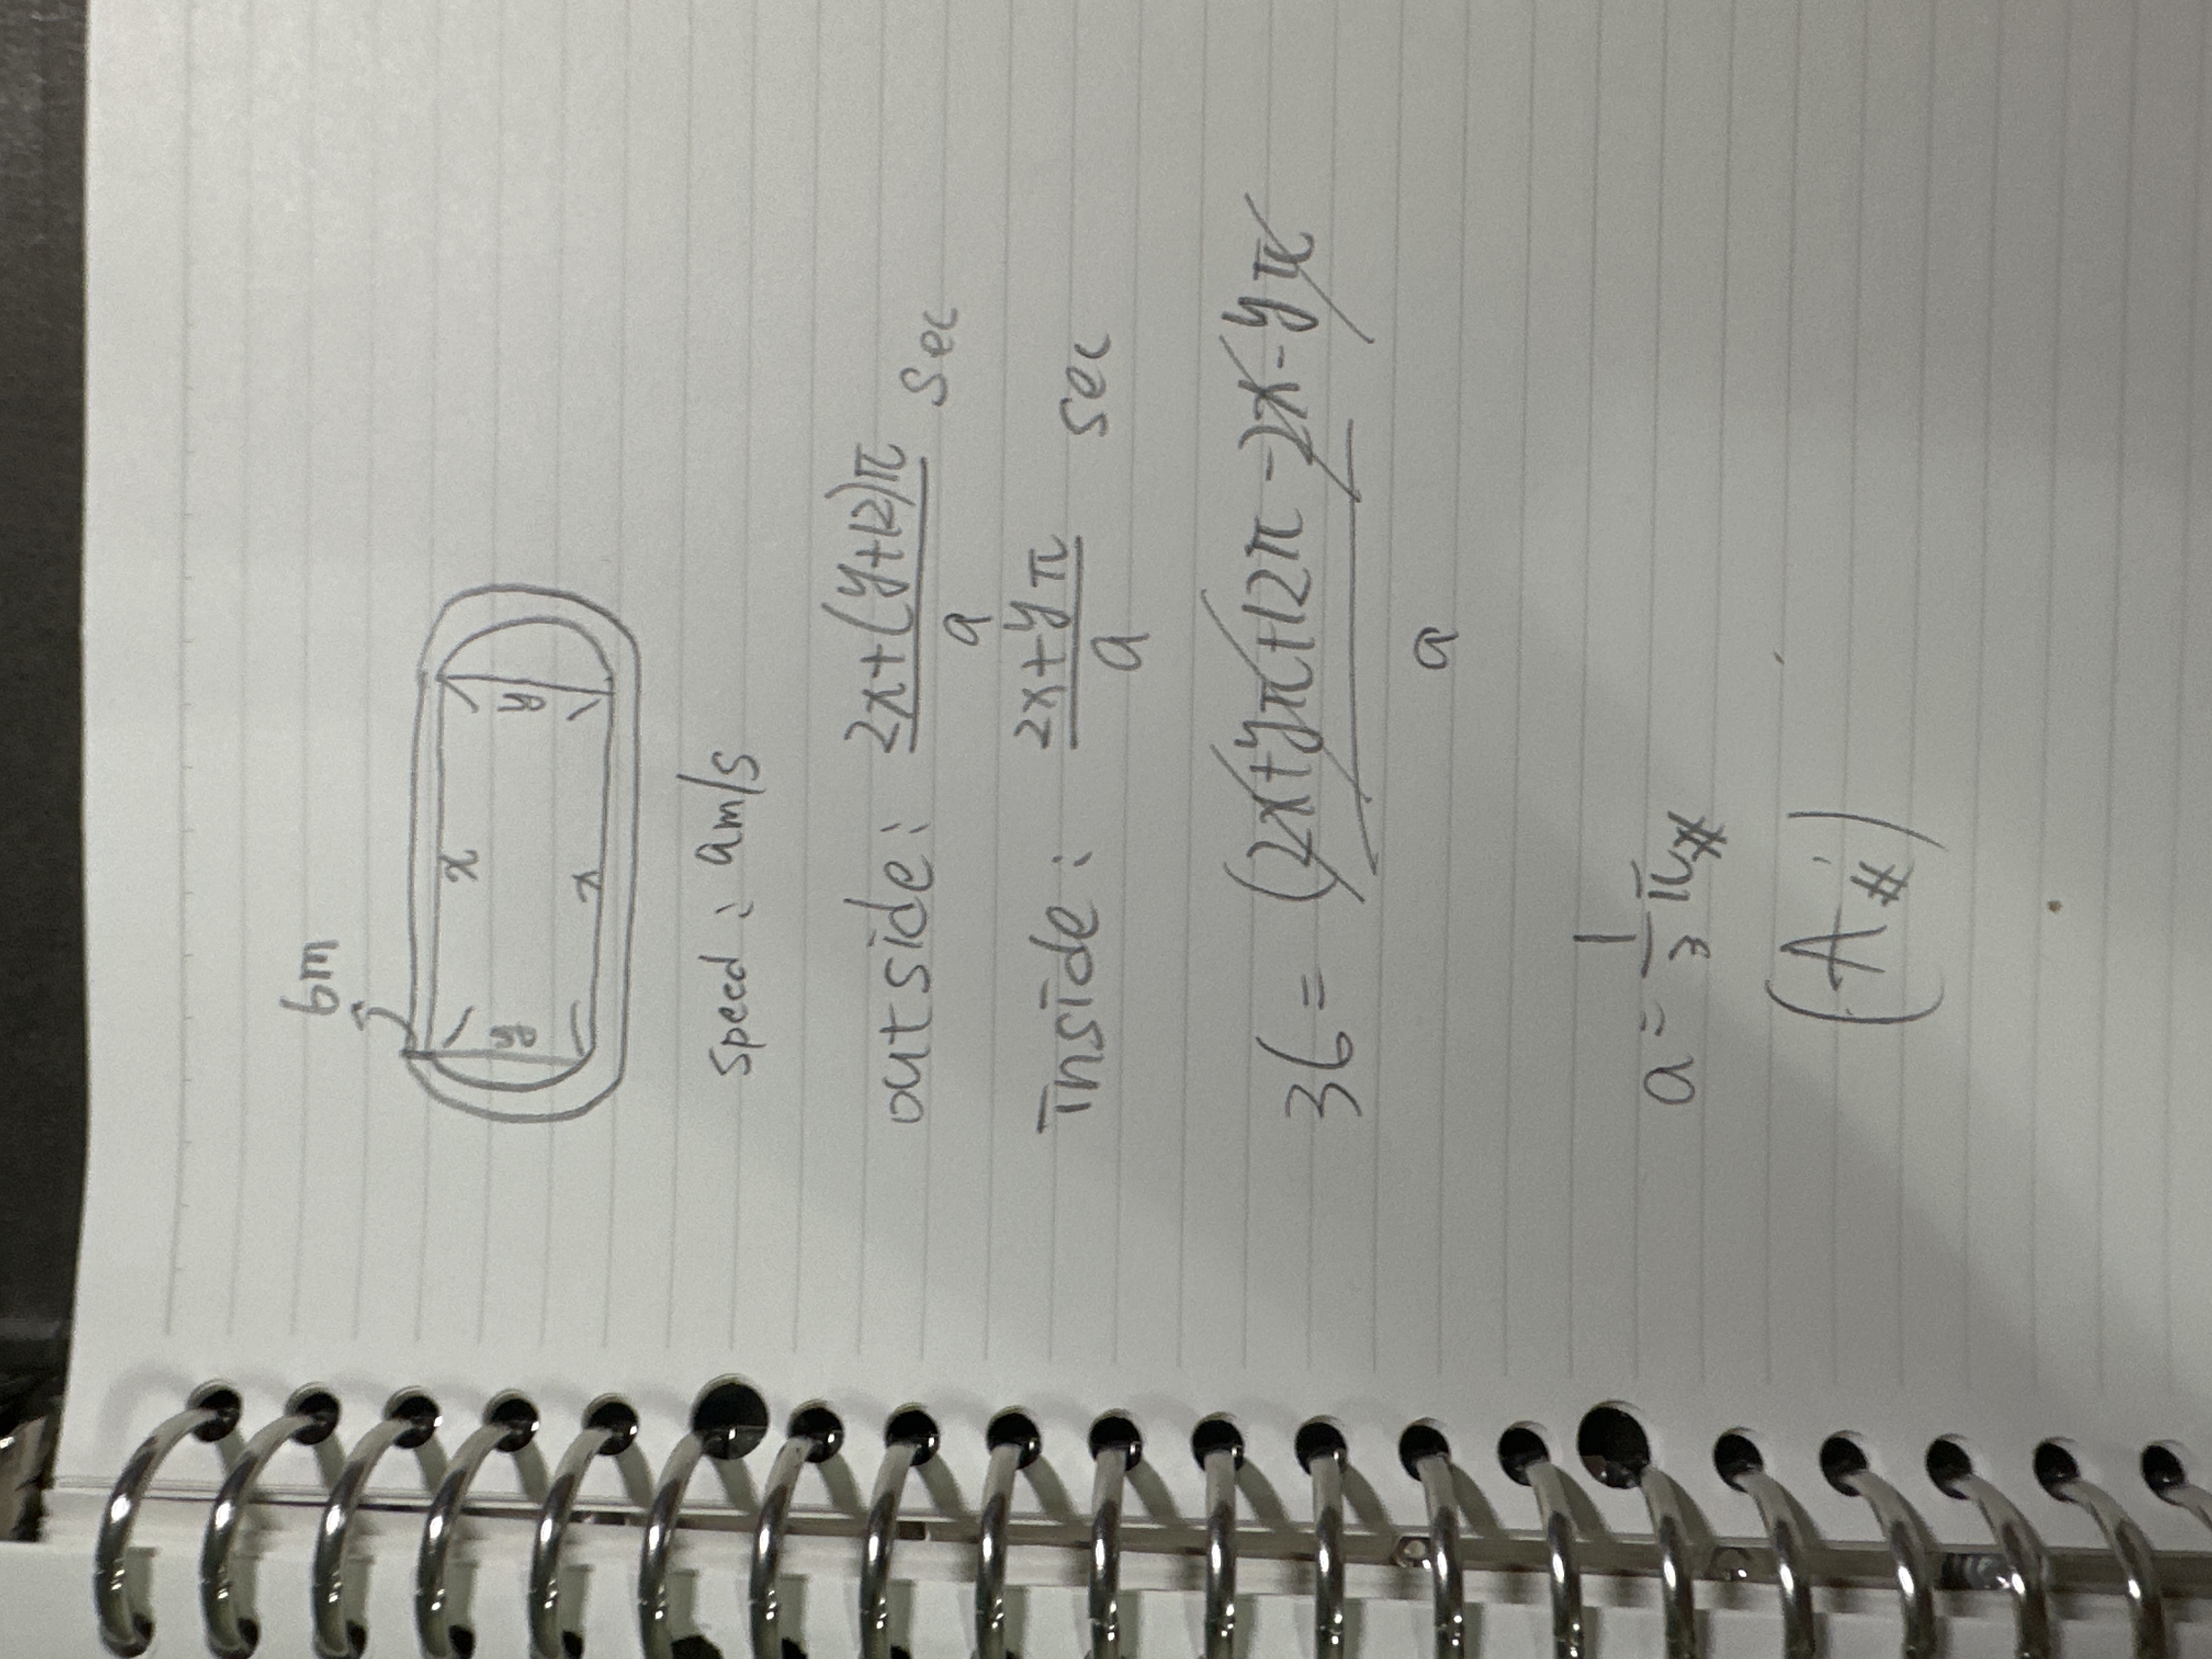 6m
x
y
y
x
speed : am/s
outside : 2x+(y+12)π / a sec
inside : 2x+yπ / a sec
36 = (2x+yπ+12π-2x-yπ / a
a = 1/3 π #
(A #)